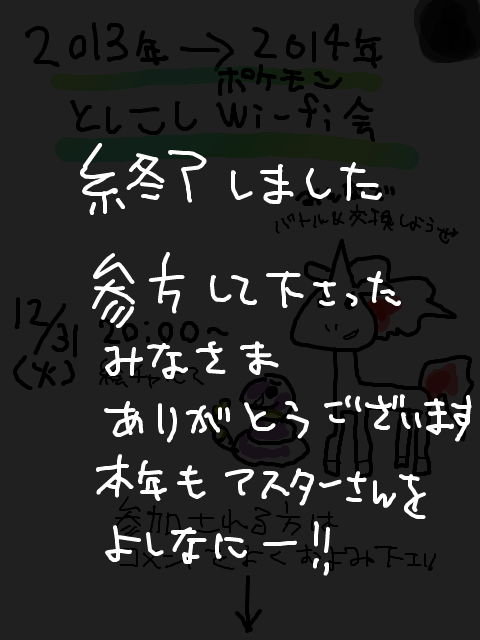 2013年→2014年
ポケモン
としこしWi-fi会
終了しました
バトル&交換しようぜ
参方して下さった
12/31
20:00〜
(火)
みなさま
ありがとうございます
本年もアスターさんを
参加される方は
よしなにー!!